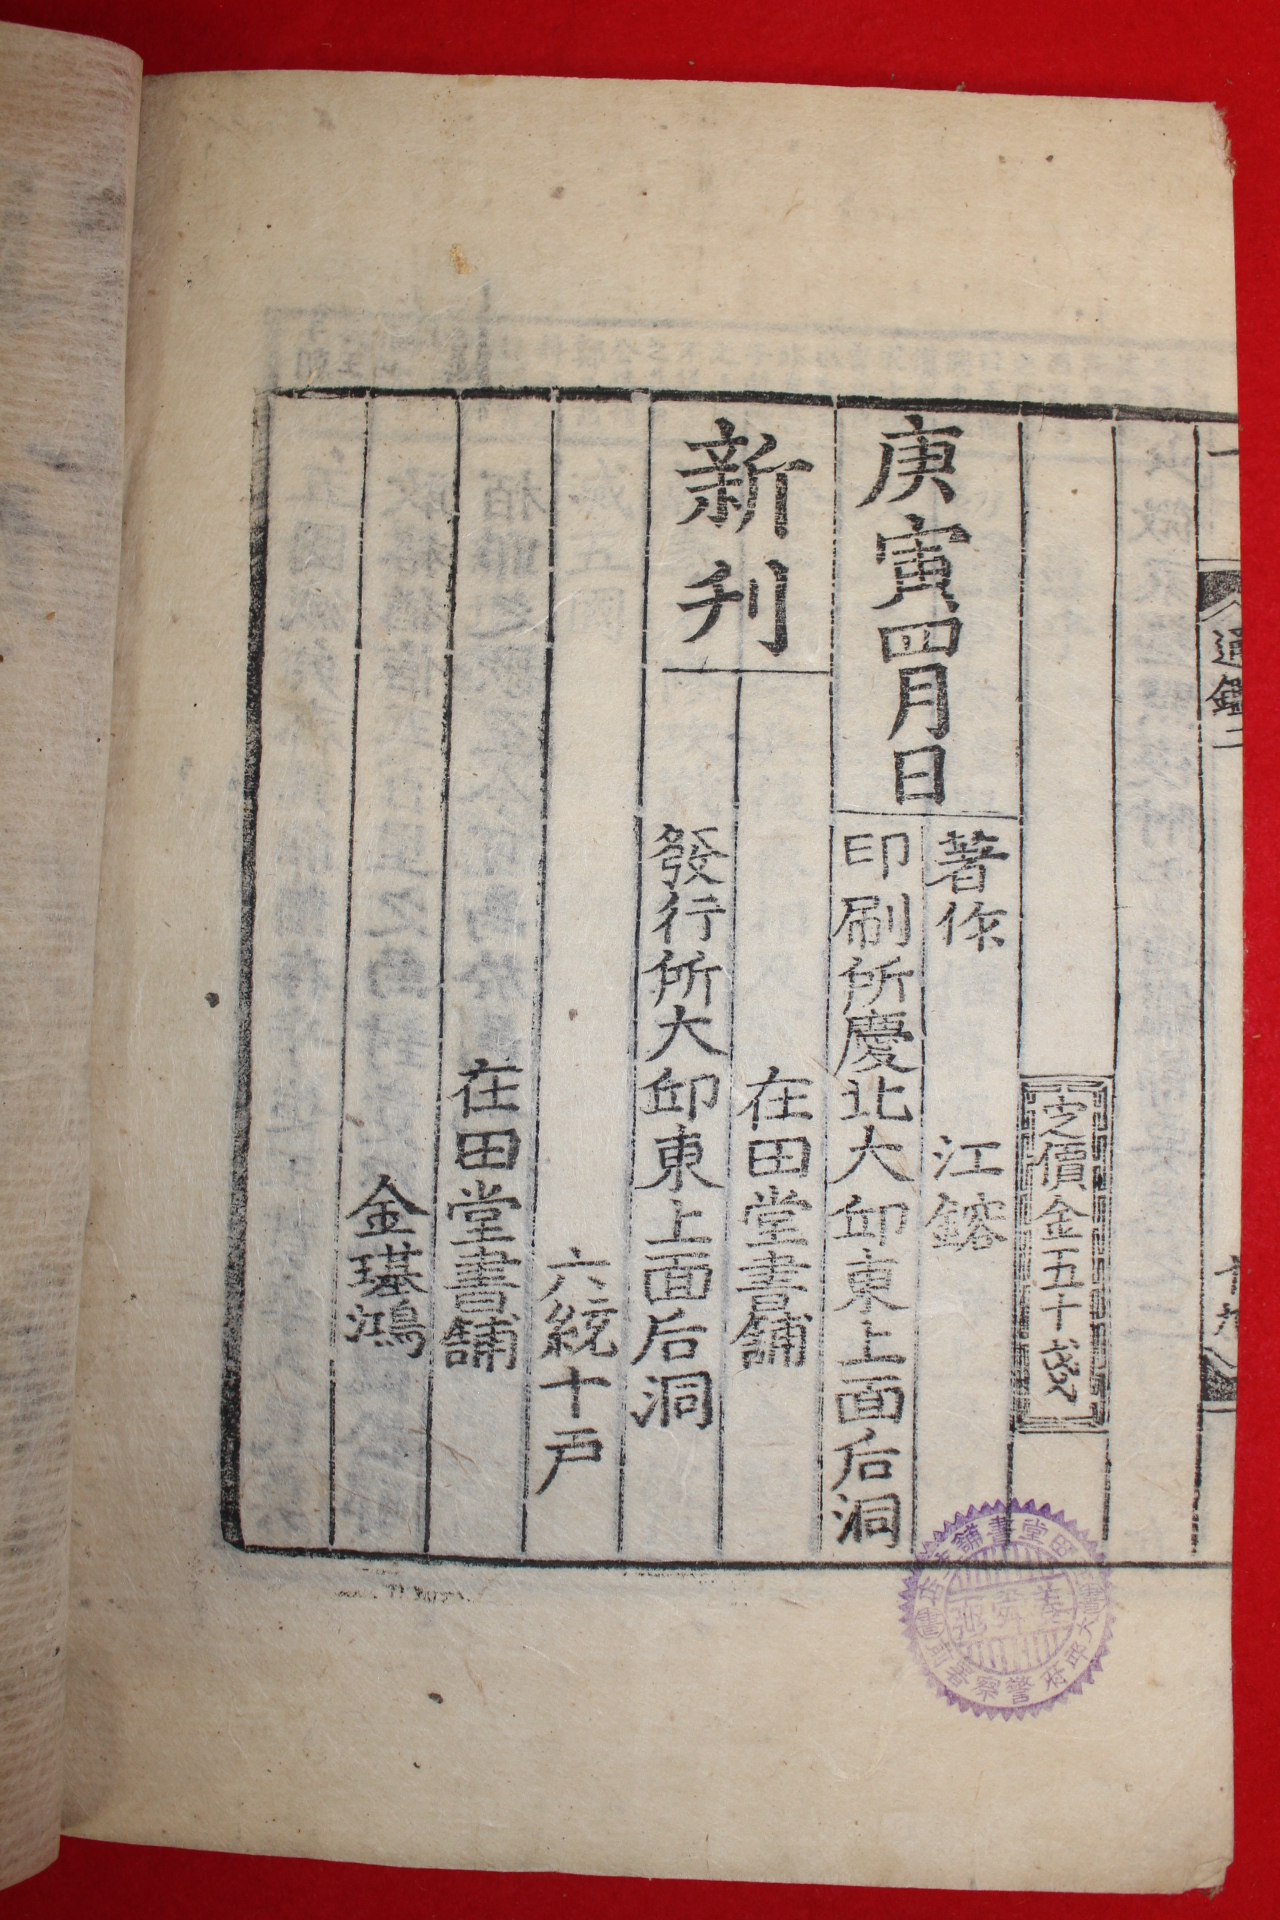 通鑑二
定價金五十戔
著作 江鎔
庚寅四月日
印刷所慶北大邱東上面后洞
在田堂書舖
新刊
發行所大邱東上面后洞
六統十戶
在田堂書舖
金璂鴻